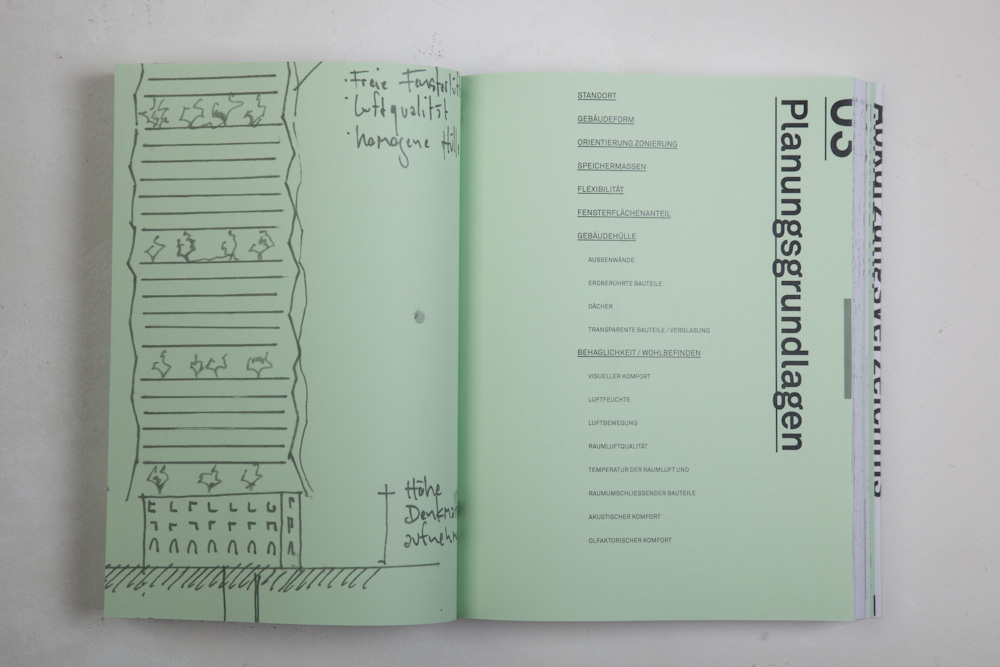 · Freie
· Luftqualität
· homogene
Höhe
STANDORT
GEBÄUDEFORM
ORIENTIERUNG ZONIERUNG
SPEICHERMASSEN
FLEXIBILITÄT
FENSTERFLÄCHENANTEIL
GEBÄUDEHÜLLE
AUSSENWÄNDE
ERDBERÜHRTE BAUTEILE
DÄCHER
TRANSPARENTE BAUTEILE / VERGLASUNG
BEHAGLICHKEIT / WOHLBEFINDEN
VISUELLER KOMFORT
LUFTFEUCHTE
LUFTBEWEGUNG
RAUMLUFTQUALITÄT
TEMPERATUR DER RAUMLUFT UND
RAUMUMSCHLIESSENDER BAUTEILE
AKUSTISCHER KOMFORT
OLFAKTORISCHER KOMFORT
03
Planungsgrundlagen